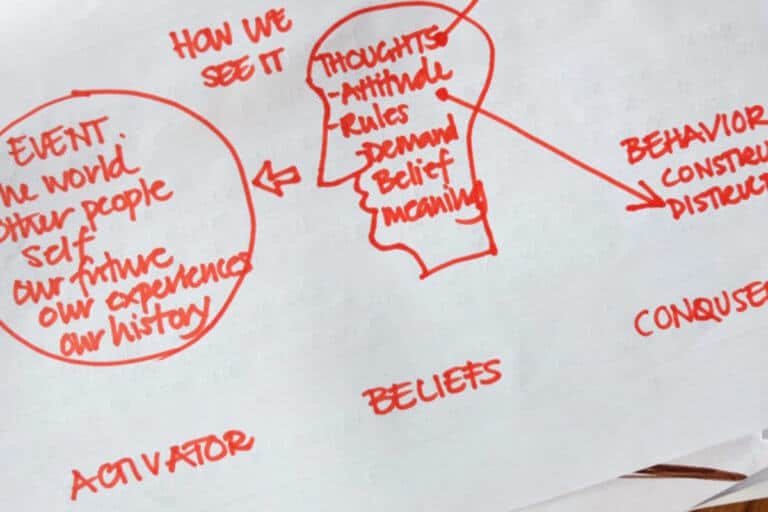 HOW WE
SEE IT
EVENT.
he world
other people
self
our future
our experiences
our history
THOUGHTS
-Attitude
-Rules
-Demand
Belief
meaning
BEHAVIOR
CONSTRU
DISTRUC
ACTIVATOR
BELIEFS
CONQUSE